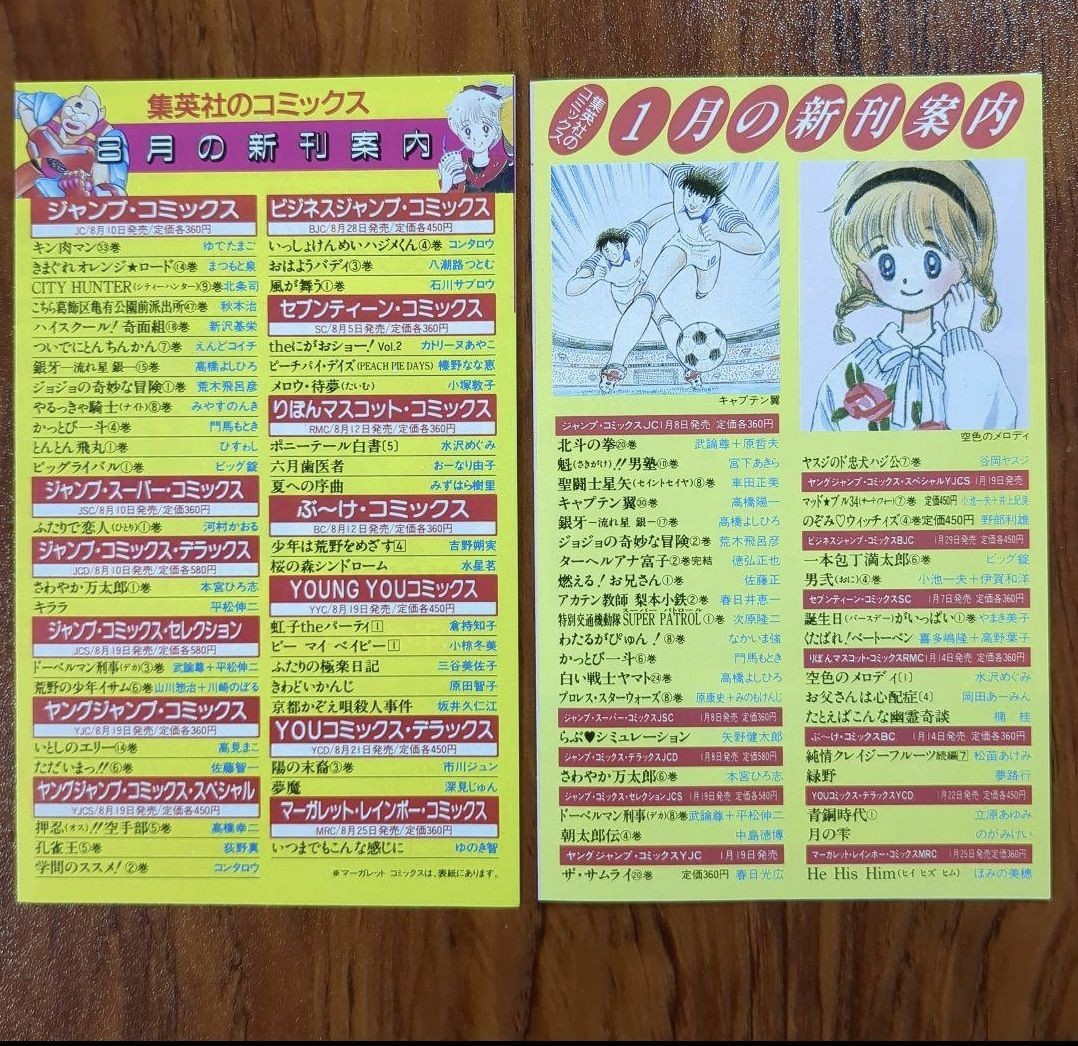 集英社のコミックス
8月の新刊案内
ジャンプ・コミックス
JC/8月10日発売/定価各360円
キン肉マン㉝巻 ゆでたまご
きまぐれオレンジ★ロード⑭巻 まつもと泉
CITY HUNTER(シティーハンター)⑨巻 北条司
こちら葛飾区亀有公園前派出所㊼巻 秋本治
ハイスクール!奇面組⑱巻 新沢基栄
ついでにとんちんかん⑦巻 えんどコイチ
銀牙―流れ星 銀―⑮巻 高橋よしひろ
ジョジョの奇妙な冒険①巻 荒木飛呂彦
やるっきゃ騎士(ナイト)⑧巻 みやすのんき
かっとび一斗④巻 門馬もとき
とんとん飛丸①巻 ひすわし
ビッグライバル①巻 ビッグ錠
ジャンプ・スーパー・コミックス
JSC/8月10日発売/定価各360円
ふたりで恋人(ひとり)①巻 河村かおる
ジャンプ・コミックス・デラックス
JCD/8月10日発売/定価各580円
さわやか万太郎①巻 本宮ひろ志
キララ 平松伸二
ジャンプ・コミックス・セレクション
JCS/8月19日発売/定価各580円
ドーベルマン刑事(デカ)③巻 武論尊+平松伸二
荒野の少年イサム⑥巻 山川惣治+川崎のぼる
ヤングジャンプ・コミックス
YJC/8月19日発売/定価各360円
いとしのエリー⑭巻 高見まこ
ただいまっ!!⑥巻 佐藤智一
ヤングジャンプ・コミックス・スペシャル
YJCS/8月19日発売/定価各450円
押忍(オス)!!空手部⑤巻 高橋幸二
孔雀王⑤巻 荻野真
学問のススメ!②巻 コンタロウ
ビジネスジャンプ・コミックス
BJC/8月28日発売/定価各450円
いっしょけんめいハジメくん④巻 コンタロウ
おはようバディ③巻 八潮路つとむ
風が舞う①巻 石川サブロウ
セブンティーン・コミックス
SC/8月5日発売/定価各360円
theにがおショー!Vol.2 カトリーヌあやこ
ピーチパイ・デイズ(PEACH PIE DAYS) 櫟野なな恵
メロウ・待夢(たいむ) 小塚敦子
りぼんマスコット・コミックス
RMC/8月12日発売/定価各360円
ポニーテール白書[5] 水沢めぐみ
六月歯医者 おーなり由子
夏への序曲 みずはら樹里
ぶ〜け・コミックス
BC/8月12日発売/定価各360円
少年は荒野をめざす[4] 吉野朔実
桜の森シンドローム 水星茗
YOUNG YOUコミックス
YYC/8月19日発売/定価各450円
虹子theパーティ[1] 倉持知子
ビー マイ ベイビー[1] 小椋冬美
ふたりの極楽日記 三谷美佐子
きわどいかんじ 原田智子
京都かぞえ唄殺人事件 坂井久仁江
YOUコミックス・デラックス
YCD/8月21日発売/定価各450円
陽の末裔③巻 市川ジュン
夢魔 深見じゅん
マーガレット・レインボー・コミックス
MRC/8月25日発売/定価360円
いつまでもこんな感じに ゆのき智
※マーガレット コミックスは、表紙にあります。
集英社のコミックス
1月の新刊案内
キャプテン翼
空色のメロディ
ジャンプ・コミックスJC 1月8日発売 定価各360円
北斗の拳⑳巻 武論尊+原哲夫
魁(さきがけ)!!男塾⑩巻 宮下あきら
聖闘士星矢(セイントセイヤ)⑧巻 車田正美
キャプテン翼㉚巻 高橋陽一
銀牙―流れ星 銀―⑰巻 高橋よしひろ
ジョジョの奇妙な冒険②巻 荒木飛呂彦
ターヘルアナ富子②巻完結 徳弘正也
燃える!お兄さん①巻 佐藤正
アカテン教師 梨本小鉄②巻 春日井恵一
特別交通機動隊SUPER PATROL(スーパーパトロール)①巻 次原隆二
わたるがぴゅん!⑧巻 なかいま強
かっとび一斗⑥巻 門馬もとき
白い戦士ヤマト㉔巻 高橋よしひろ
プロレス・スターウォーズ⑧巻 原康史+みのもけんじ
ジャンプ・スーパー・コミックスJSC 1月8日発売 定価360円
らぶ♥シミュレーション 矢野健太郎
ジャンプ・コミックス・デラックスJCD 1月8日発売 定価580円
さわやか万太郎⑥巻 本宮ひろ志
ジャンプ・コミックス・セレクションJCS 1月19日発売 定価各580円
ドーベルマン刑事(デカ)⑧巻 武論尊+平松伸二
朝太郎伝④巻 中島徳博
ヤングジャンプ・コミックスYJC 1月19日発売
ザ・サムライ⑳巻 定価360円 春日光広
ヤスジのド忠犬ハジ公⑦巻 谷岡ヤスジ
ヤングジャンプ・コミックス・スペシャルYJCS 1月19日発売
マッド★ブル34(サーティフォー)⑦巻 定価450円 小池一夫+井上紀良
のぞみ♡ウィッチィズ④巻 定価450円 野部利雄
ビジネスジャンプ・コミックスBJC 1月29日発売 定価各450円
一本包丁満太郎⑥巻 ビッグ錠
男弐(おに)④巻 小池一夫+伊賀和洋
セブンティーン・コミックスSC 1月7日発売 定価各360円
誕生日(バースデー)がいっぱい①巻 やまき美子
くたばれ!ベートーベン 喜多嶋隆+高野葉子
りぼんマスコット・コミックスRMC 1月14日発売 定価各360円
空色のメロディ[1] 水沢めぐみ
お父さんは心配症[4] 岡田あーみん
たとえばこんな幽霊奇談 楠桂
ぶ〜け・コミックスBC 1月14日発売 定価各360円
純情クレイジーフルーツ続編[7] 松苗あけみ
緑野 夢路行
YOUコミックス・デラックスYCD 1月22日発売 定価各450円
青銅時代① 立原あゆみ
月の雫 のがみけい
マーガレット・レインボー・コミックスMRC 1月25日発売 定価360円
He His Him(ヒイ ヒズ ヒム) ほみの美穂